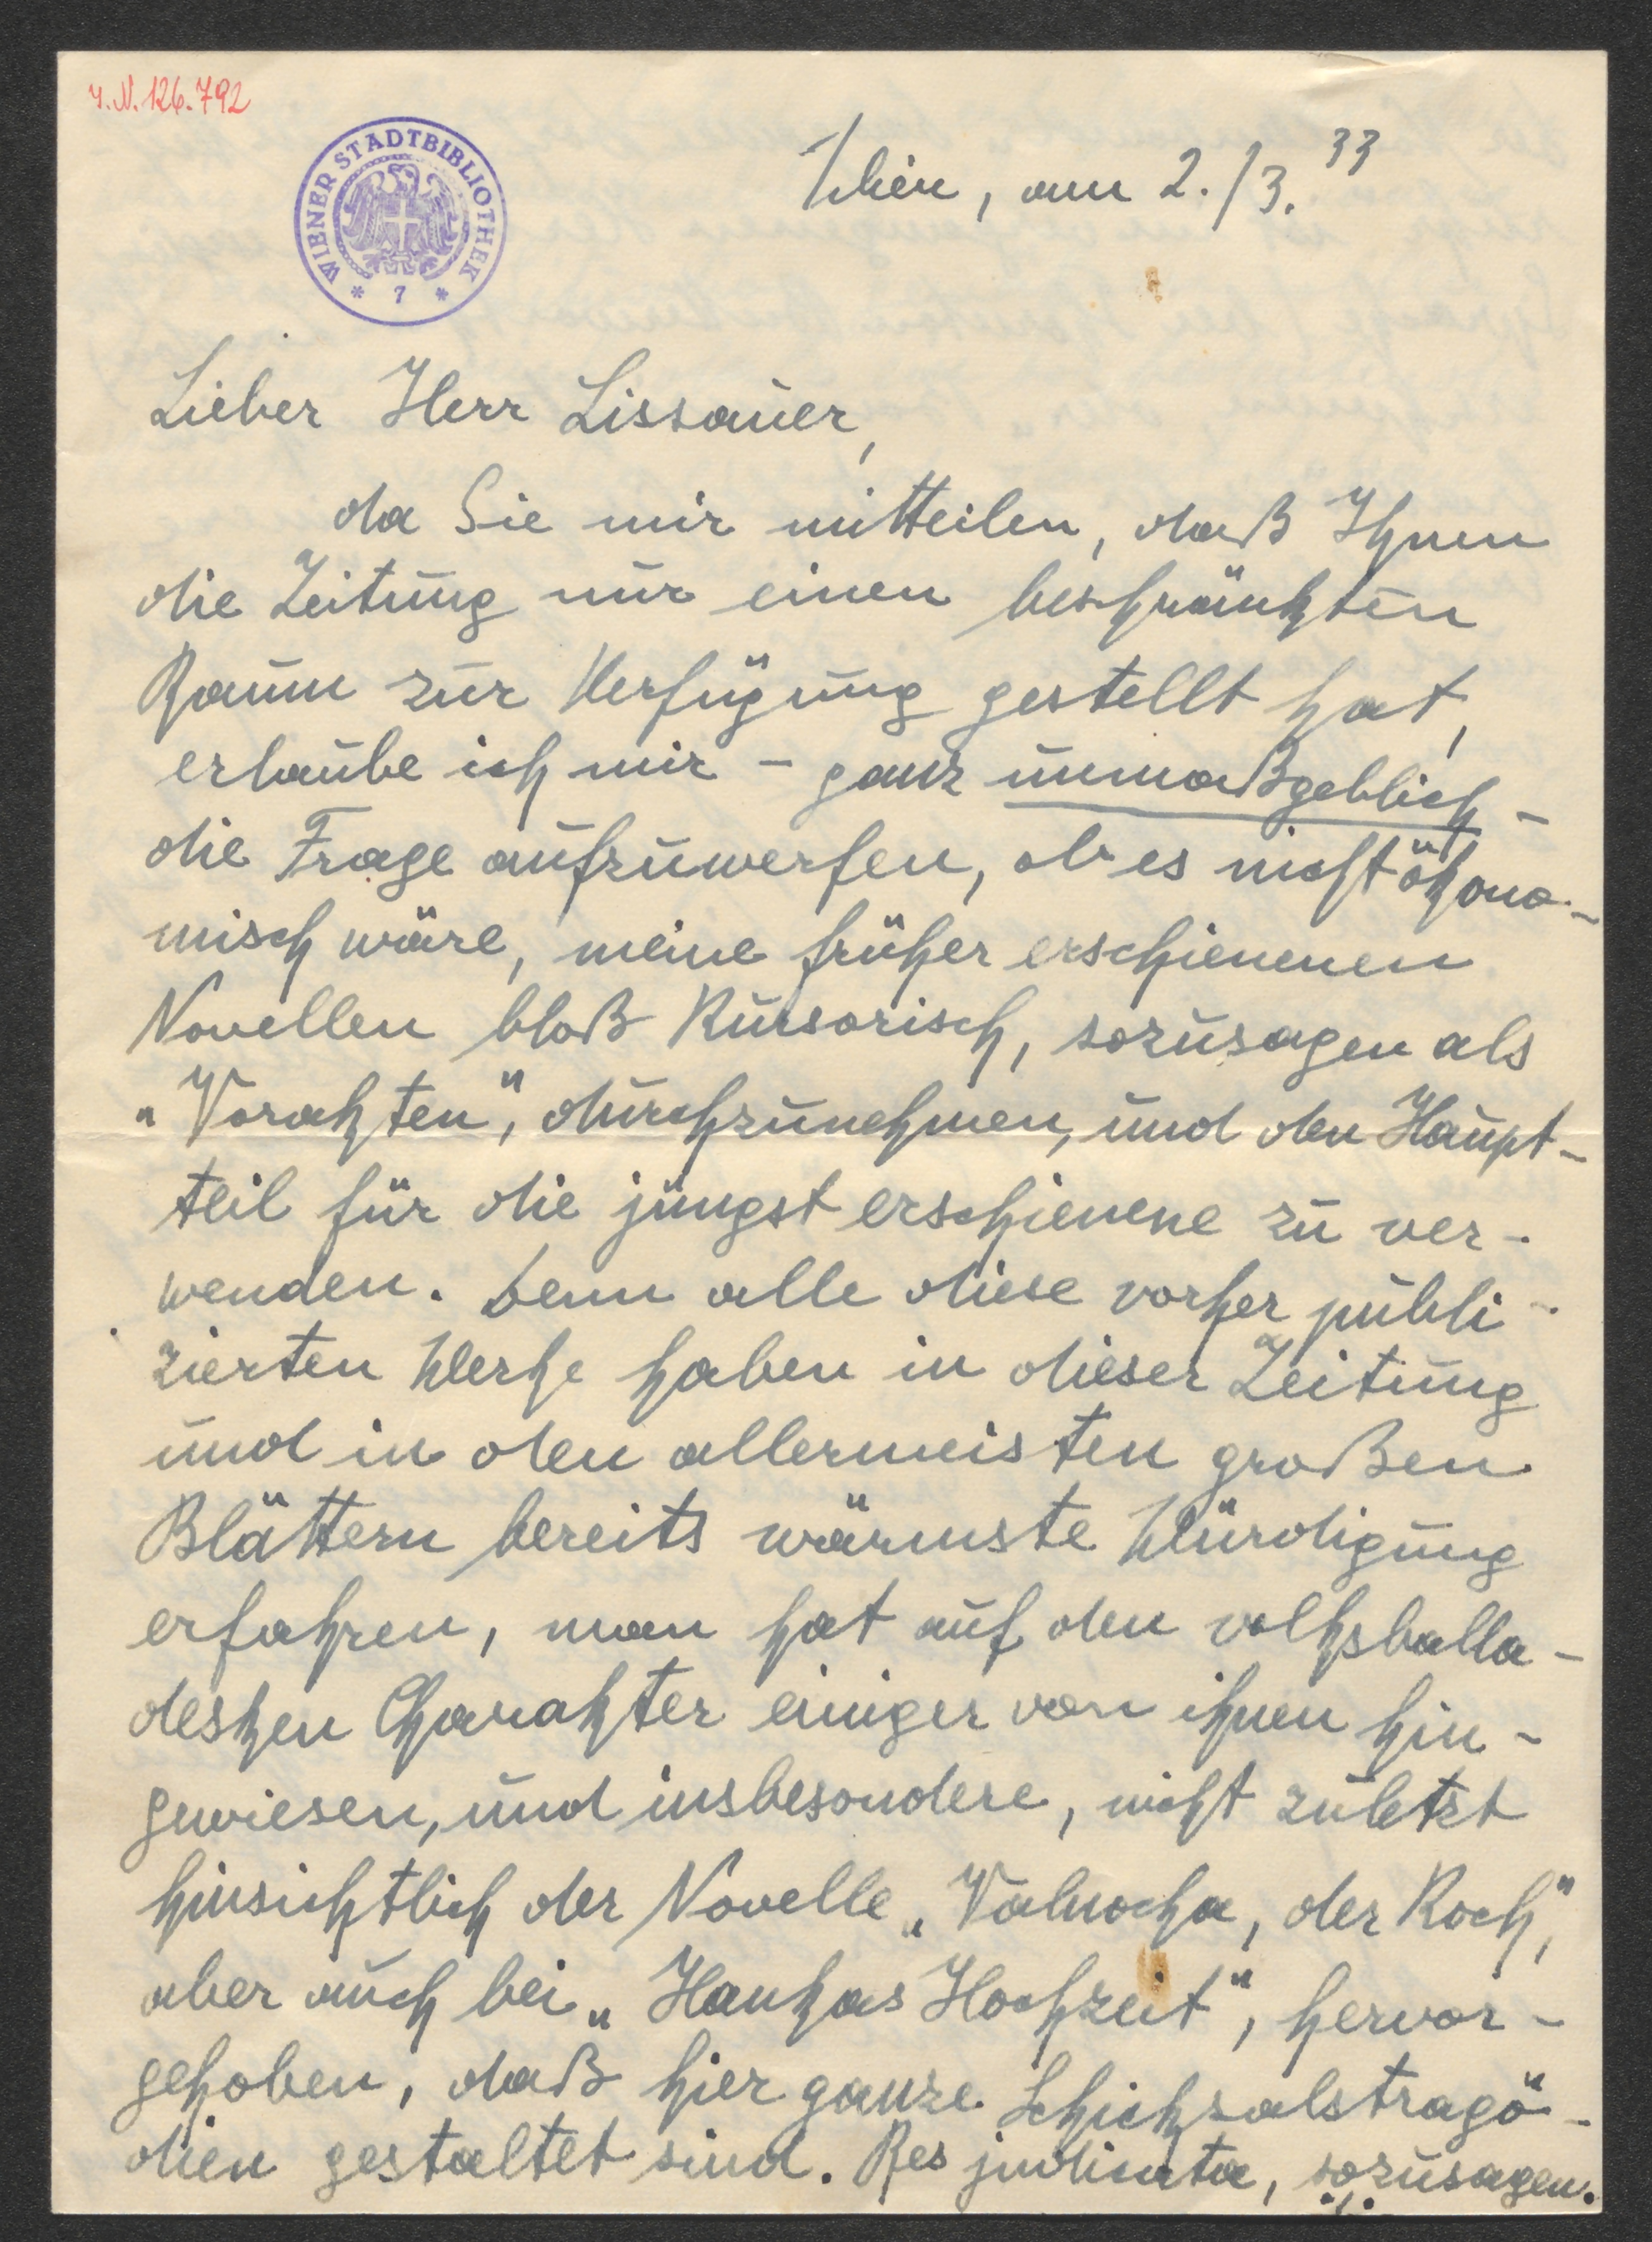 I. N. 126.792
WIENER STADTBIBLIOTHEK
* 7 *
Wien, am 2./3. 33
Lieber Herr Lissauer,
da Sie mir mitteilen, daß Ihnen
die Zeitung nur einen beschränkten
Raum zur Verfügung gestellt hat,
erlaube ich mir – ganz unmaßgeblich –
die Frage aufzuwerfen, ob es nicht ökono-
misch wäre, meine früher erschienenen
Novellen bloß kursorisch, sozusagen als
„Vorakten“, durchzunehmen, und den Haupt-
teil für die jüngst erschienene zu ver-
wenden. Denn alle diese vorher publi-
zierten Werke haben in dieser Zeitung
und in den allermeisten großen
Blättern bereits wärmste Würdigung
erfahren, man hat auf den volksballa-
desken Charakter einiger von ihnen hin-
gewiesen, und insbesondere, nicht zuletzt
hinsichtlich der Novelle „Valnocha, der Koch“,
aber auch bei „Hankas Hochzeit“, hervor-
gehoben, daß hier ganze Schicksalstragö-
dien gestaltet sind. Res judicata, sozusagen.
./.